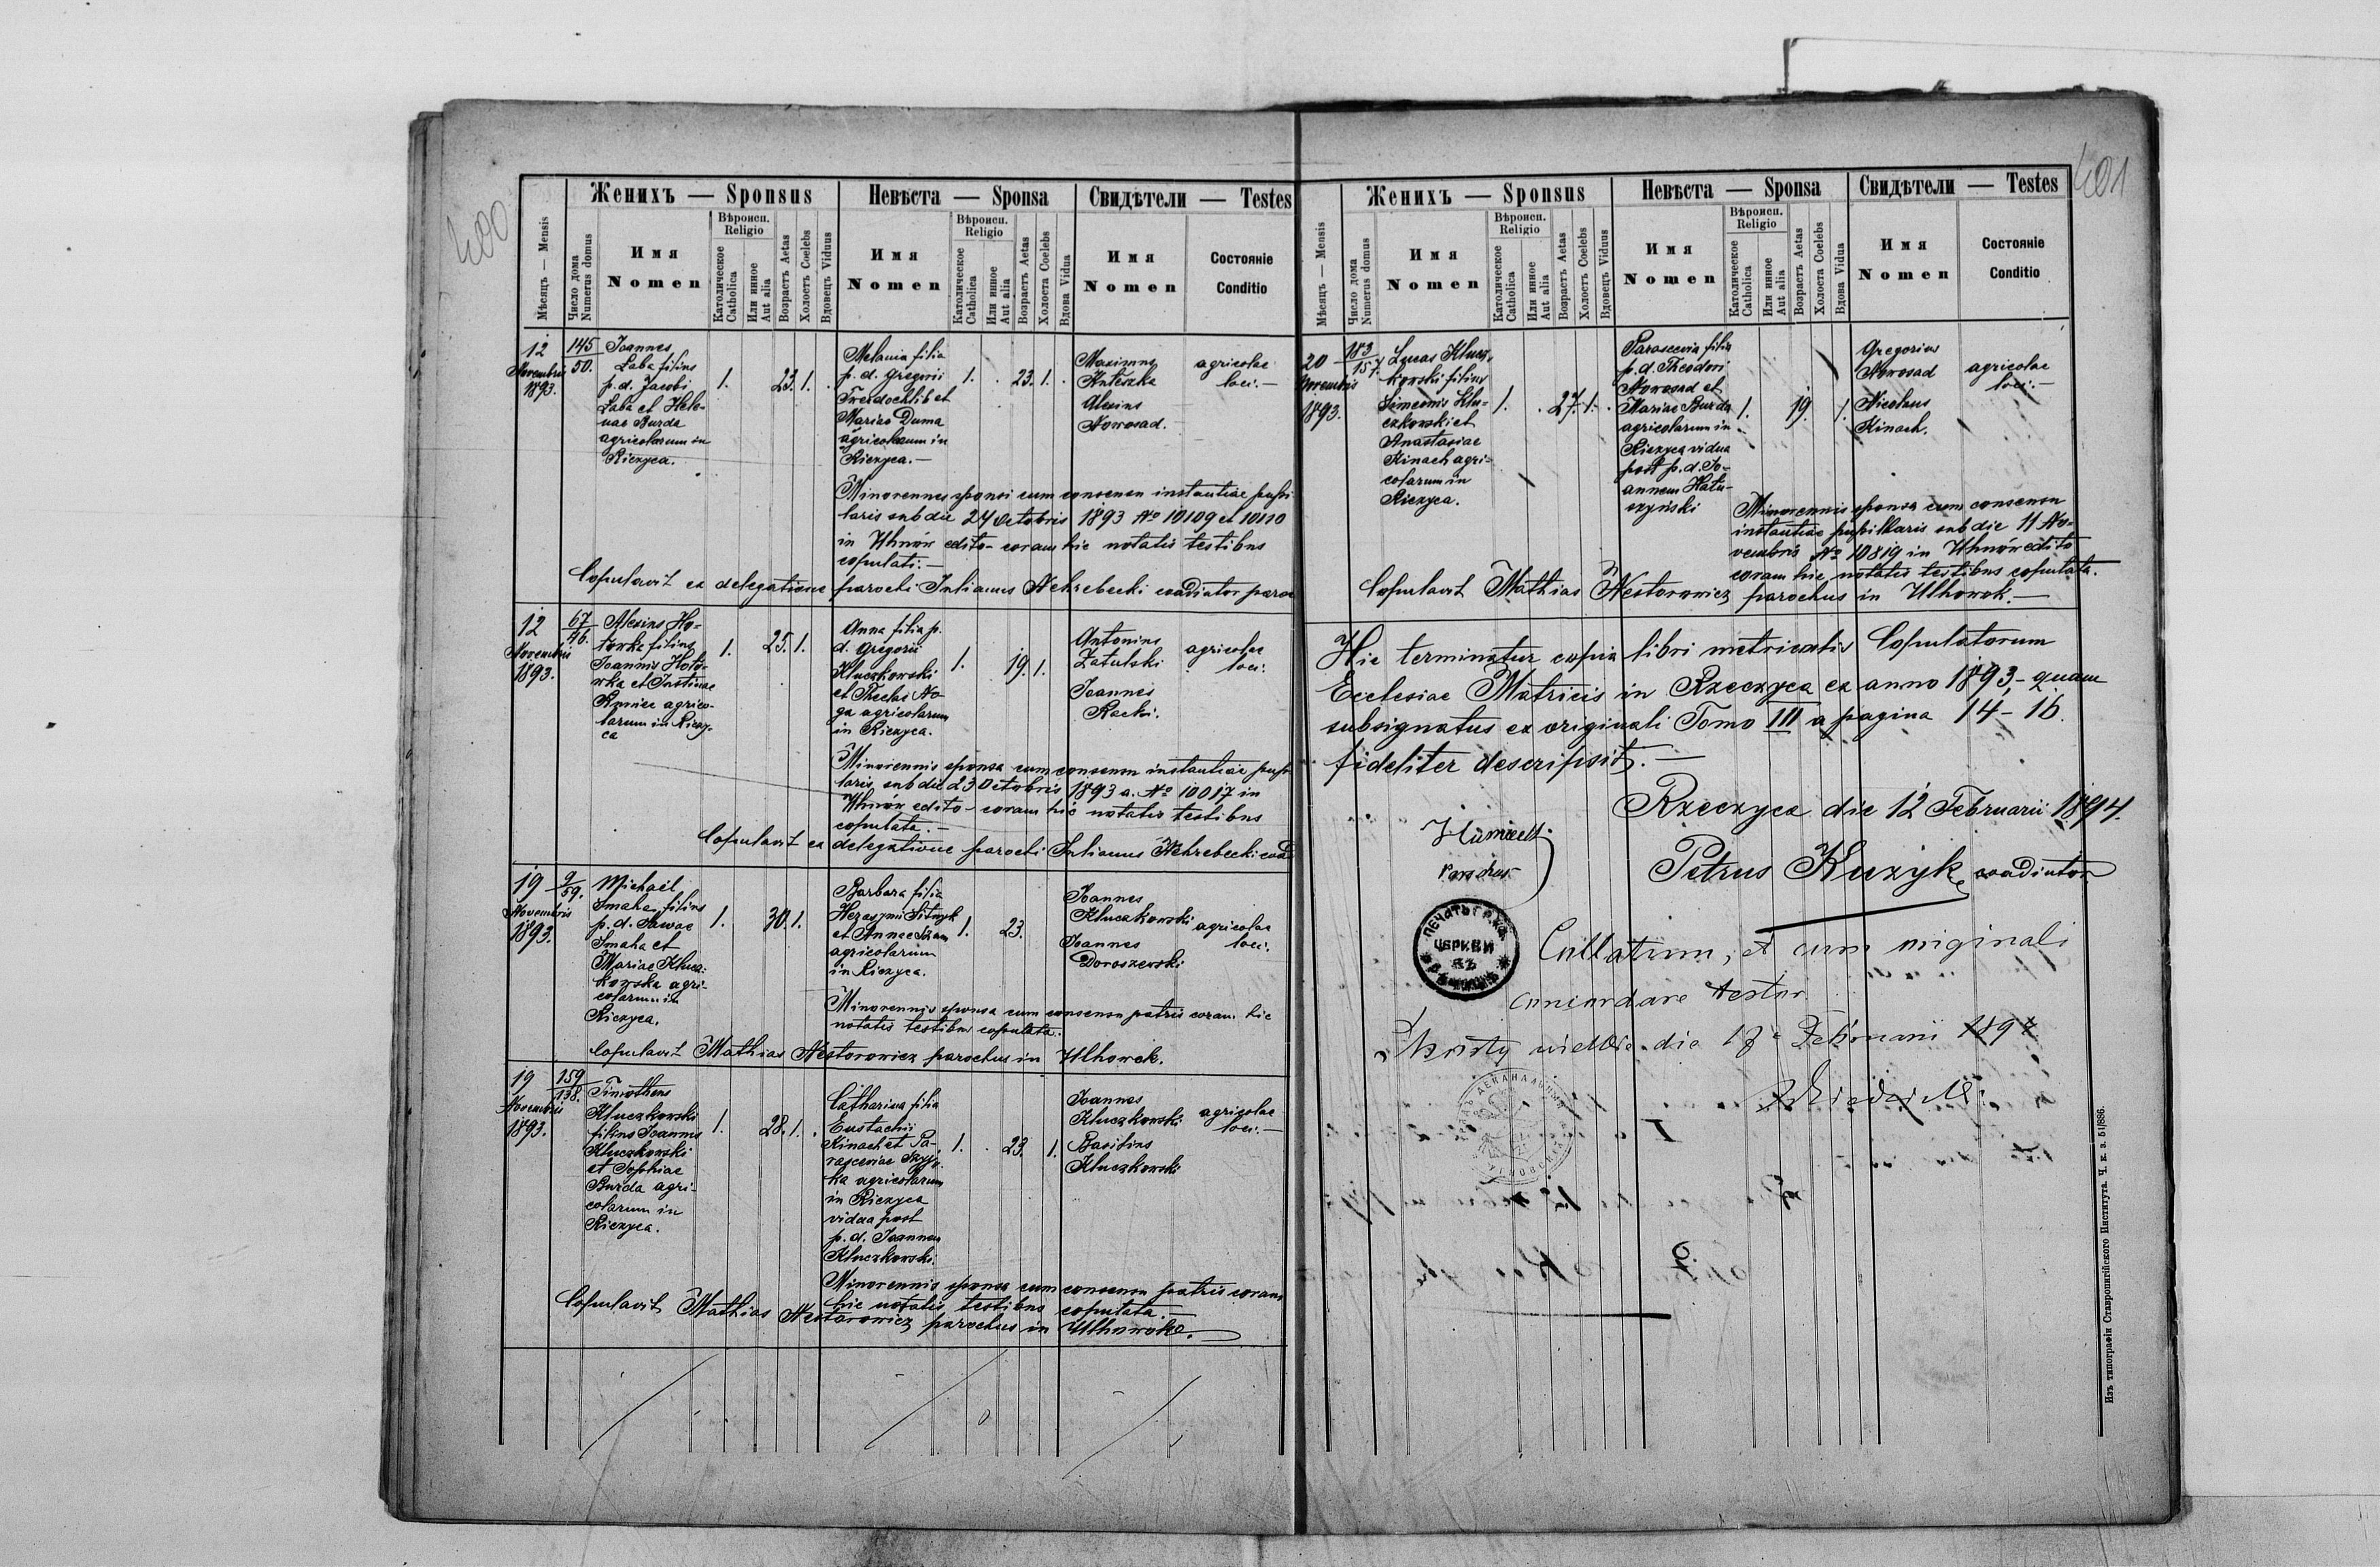 400
Женихъ — Sponsus
Невѣста — Sponsa
Свидѣтели — Testes
Мѣсяцъ — Mensis
Число дома
Numerus domus
Имя
Nomen
Вѣроисп.
Religio
Католическое
Catholica
Или инное
Aut alia
Возрастъ Aetas
Холостъ Coelebs
Вдовецъ Viduus
Имя
Nomen
Вѣроисп.
Religio
Католическое
Catholica
Или инное
Aut alia
Возрастъ Aetas
Холоста Coelebs
Вдова Vidua
Имя
Nomen
Состояніе
Conditio
12
Novembris
1893.
145
50.
Joannes
Laba filius
p. d. Jacobi
Laba et Hele-
nae Burda
agricolarum in
Riczyca.
1.
23.
1.
Melania filia
p. d. Gregorii
Twerdochlib et
Mariae Duma
agricolarum in
Riczyca.—
1.
23.
1.
Maximus
Alexius
Nowosad.
agricolae
loci.—
Minorennes sponsi cum consensu instantiae pupil
laris sub die 24 Octobris 1893 No 10109 et 10110
in Uhnów edito - coram hic notatis testibus
copulati.—
Copulavit ex delegatione parochi Julianus Nehrebecki coadiutor paroc
12
Novembris
1893.
67
46.
Alexius Ho-
lowka filius
Joannis Holo-
wka et Justinae
agrico-
larum in Riczy-
ca
1.
25.
1.
Anna filia p.
d. Gregorii
Kluczkowski
et Theclae No-
ga agricolarum
in Riczyca.
1.
19.
1.
Antonius
Zatulski
Joannes
agricolae
loci.
Minorennis sponsa cum consensu instantiae pupil
laris sub die 23 Octobris 1893 a. No 10017 in
Uhnów edito - coram hic notatis testibus
copulata.—
Copulavit ex delegatione parochi Julianus Nehrebecki coad
19
Novembris
1893.
9
59.
Michael
Smaha filius
p. d. Sawae
Smaha et
Mariae Klucz-
kowska agri-
colarum in
Riczyca.
1.
30.
1.
Barbara filia
et Annae
agricolarum
in Riczyca.
1.
23.
Joannes
Kluczkowski
Joannes
Doroszewski
agricolae
loci.
Minorennis sponsa cum consensu patris coram hic
notatis testibus copulata.
Copulavit Mathias Nestorowicz parochus in Ulhowek.
19
Novembris
1893.
159
138.
Timotheus
Kluczkowski
filius Joannis
Kluczkowski
et Sophiae
Burda agri-
colarum in
Riczyca.
1.
28.
1.
Catharina filia
Eustachii
Kinach et Pa-
rasceviae
agricolarum
in Riczyca
vidua post
p. d. Joannem
Kluczkowski.
1.
23.
1.
Joannes
Kluczkowski
Basilius
Kluczkowski
agricolae
loci.—
Minorennis sponsa cum consensu patris coram
hic notatis testibus copulata.—
Copulavit Mathias Nestorowicz parochus in Ulhowek.
401
Женихъ — Sponsus
Невѣста — Sponsa
Свидѣтели — Testes
Мѣсяцъ — Mensis
Число дома
Numerus domus
Имя
Nomen
Вѣроисп.
Religio
Католическое
Catholica
Или инное
Aut alia
Возрастъ Aetas
Холостъ Coelebs
Вдовецъ Viduus
Имя
Nomen
Вѣроисп.
Religio
Католическое
Catholica
Или инное
Aut alia
Возрастъ Aetas
Холоста Coelebs
Вдова Vidua
Имя
Nomen
Состояніе
Conditio
20
Novembris
1893.
183
157.
Lucas Klucz-
kowski filius
Simeonis Klu-
czkowski et
Anastasiae
Kinach agri-
colarum in
Riczyca.
1.
27.
1.
Parascevia filia
p. d. Theodori
Nowosad et
Mariae Burda
agricolarum in
Riczyca vidua
post p. d. Jo-
annem Hatu-
szyński
1.
19.
1.
Gregorius
Nowosad
Nicolaus
Kinach.
agricolae
loci.—
Minorennis sponsa cum consensu
instantiae pupillaris sub die 11 No-
vembris No 10819 in Uhnów edito
coram hic notatis testibus copulata.
Copulavit Mathias Nestorowicz parochus in Ulhowek.—
Hic terminatur copia libri metricalis Copulatorum
Ecclesiae Matricis in Rzeczyca ex anno 1893,- quam
subsignatus ex originali Tomo III a pagina 14 - 16.
fideliter descripsit.—
Rzeczyca die 12 Februarii 1894.
parochus
Petrus Kuzyk coadiutor
ПЕЧАТЬ ГР. КА.
ЦЕРКВИ
ВЪ
Collatum, et cum originali
concordare testor
die 18 Februarii 1894
Изъ типографіи Ставропигійского Института. Ч. к. з. 51/886.